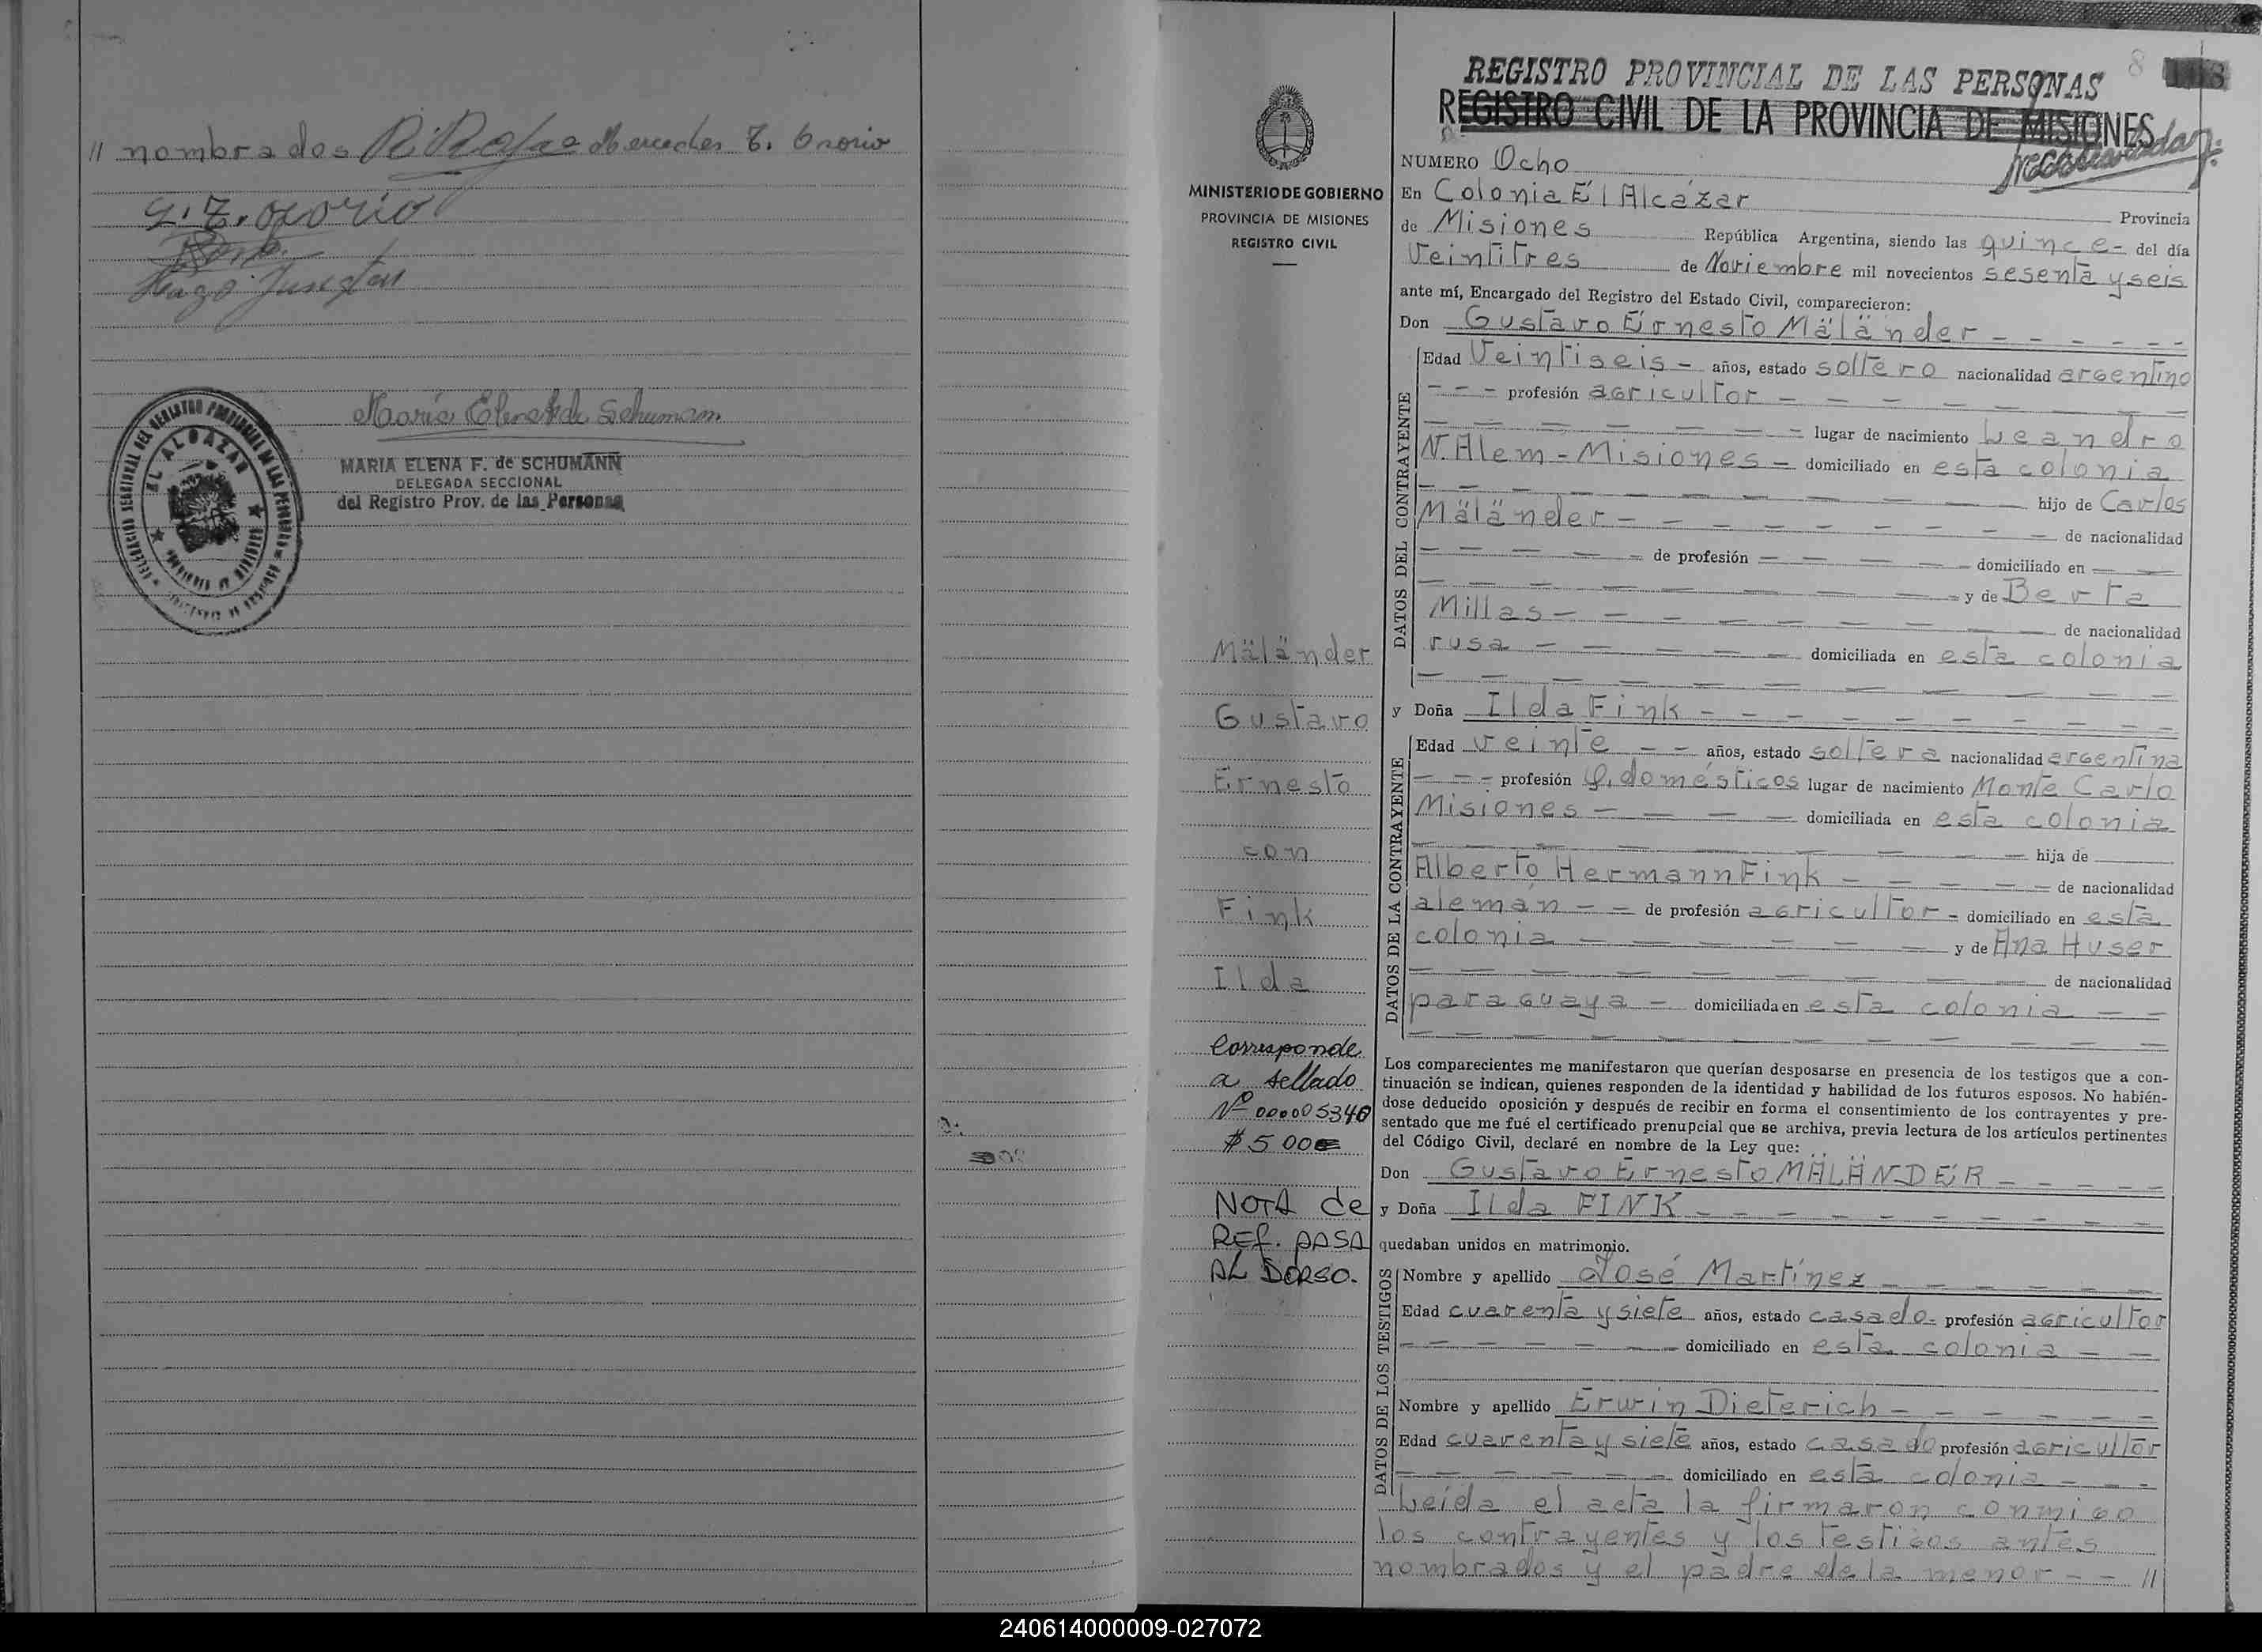 // nombrados Mercedes T. Osorio
G. T. Osorio
Hugo
María Elena F. de Schumann
MARIA ELENA F. de SCHUMANN
DELEGADA SECCIONAL
del Registro Prov. de las Personas
EL ALCAZAR
8
REGISTRO PROVINCIAL DE LAS PERSONAS
REGISTRO CIVIL DE LA PROVINCIA DE MISIONES
MINISTERIO DE GOBIERNO
PROVINCIA DE MISIONES
REGISTRO CIVIL
Mäländer
Gustavo
Ernesto
con
Fink
Ilda
Corresponde
a sellado
Nº 000005346
$ 500
NOTA de
REf. PASA
AL DORSO.
NUMERO Ocho
En Colonia El Alcázar Provincia
de Misiones República Argentina, siendo las quince - del día
Veintitres de Noviembre mil novecientos sesenta y seis
ante mí, Encargado del Registro del Estado Civil, comparecieron:
Don Gustavo Ernesto Mäländer - - - - - -
DATOS DEL CONTRAYENTE
Edad Veintiseis - años, estado soltero nacionalidad argentino
- - - profesión agricultor - - - - - - -
- - - - - - - lugar de nacimiento Leandro
N. Alem - Misiones - domiciliado en esta colonia
- - - - - - - - hijo de Carlos
Mäländer - - - - - - - - - de nacionalidad
- - - - - de profesión - - - - - domiciliado en - -
- - - - - - - - - y de Berta
Millas - - - - - - - - - de nacionalidad
rusa - - - - - - domiciliada en esta colonia
- - - - - - - - - - - -
y Doña Ilda Fink - - - - - - - - - - -
DATOS DE LA CONTRAYENTE
Edad veinte - - años, estado soltera nacionalidad argentina
- - - profesión q. domésticos lugar de nacimiento Monte Carlo
Misiones - - - - - domiciliada en esta colonia
- - - - - - - - - hija de
Alberto Hermann Fink - - - - - de nacionalidad
alemán - - de profesión agricultor - domiciliado en esta
colonia - - - - - - - y de Ana Huser
- - - - - - - - - - de nacionalidad
paraguaya - domiciliada en esta colonia - -
- - - - - - - - - - - -
Los comparecientes me manifestaron que querían desposarse en presencia de los testigos que a con-
tinuación se indican, quienes responden de la identidad y habilidad de los futuros esposos. No habién-
dose deducido oposición y después de recibir en forma el consentimiento de los contrayentes y pre-
sentado que me fué el certificado prenupcial que se archiva, previa lectura de los artículos pertinentes
del Código Civil, declaré en nombre de la Ley que:
Don Gustavo Ernesto MÄLÄNDER - - - - -
y Doña Ilda FINK - - - - - - - - - - -
quedaban unidos en matrimonio.
DATOS DE LOS TESTIGOS
Nombre y apellido José Martínez - - - - - -
Edad cuarenta y siete años, estado casado - profesión agricultor
- - - - - - - domiciliado en esta colonia - -
Nombre y apellido Erwin Dieterich - - - - - -
Edad cuarenta y siete años, estado casado profesión agricultor
- - - - - - domiciliado en esta colonia - - -
Leída el acta la firmaron conmigo
los contrayentes y los testigos antes
nombrados y el padre de la menor - - //
240614000009-027072